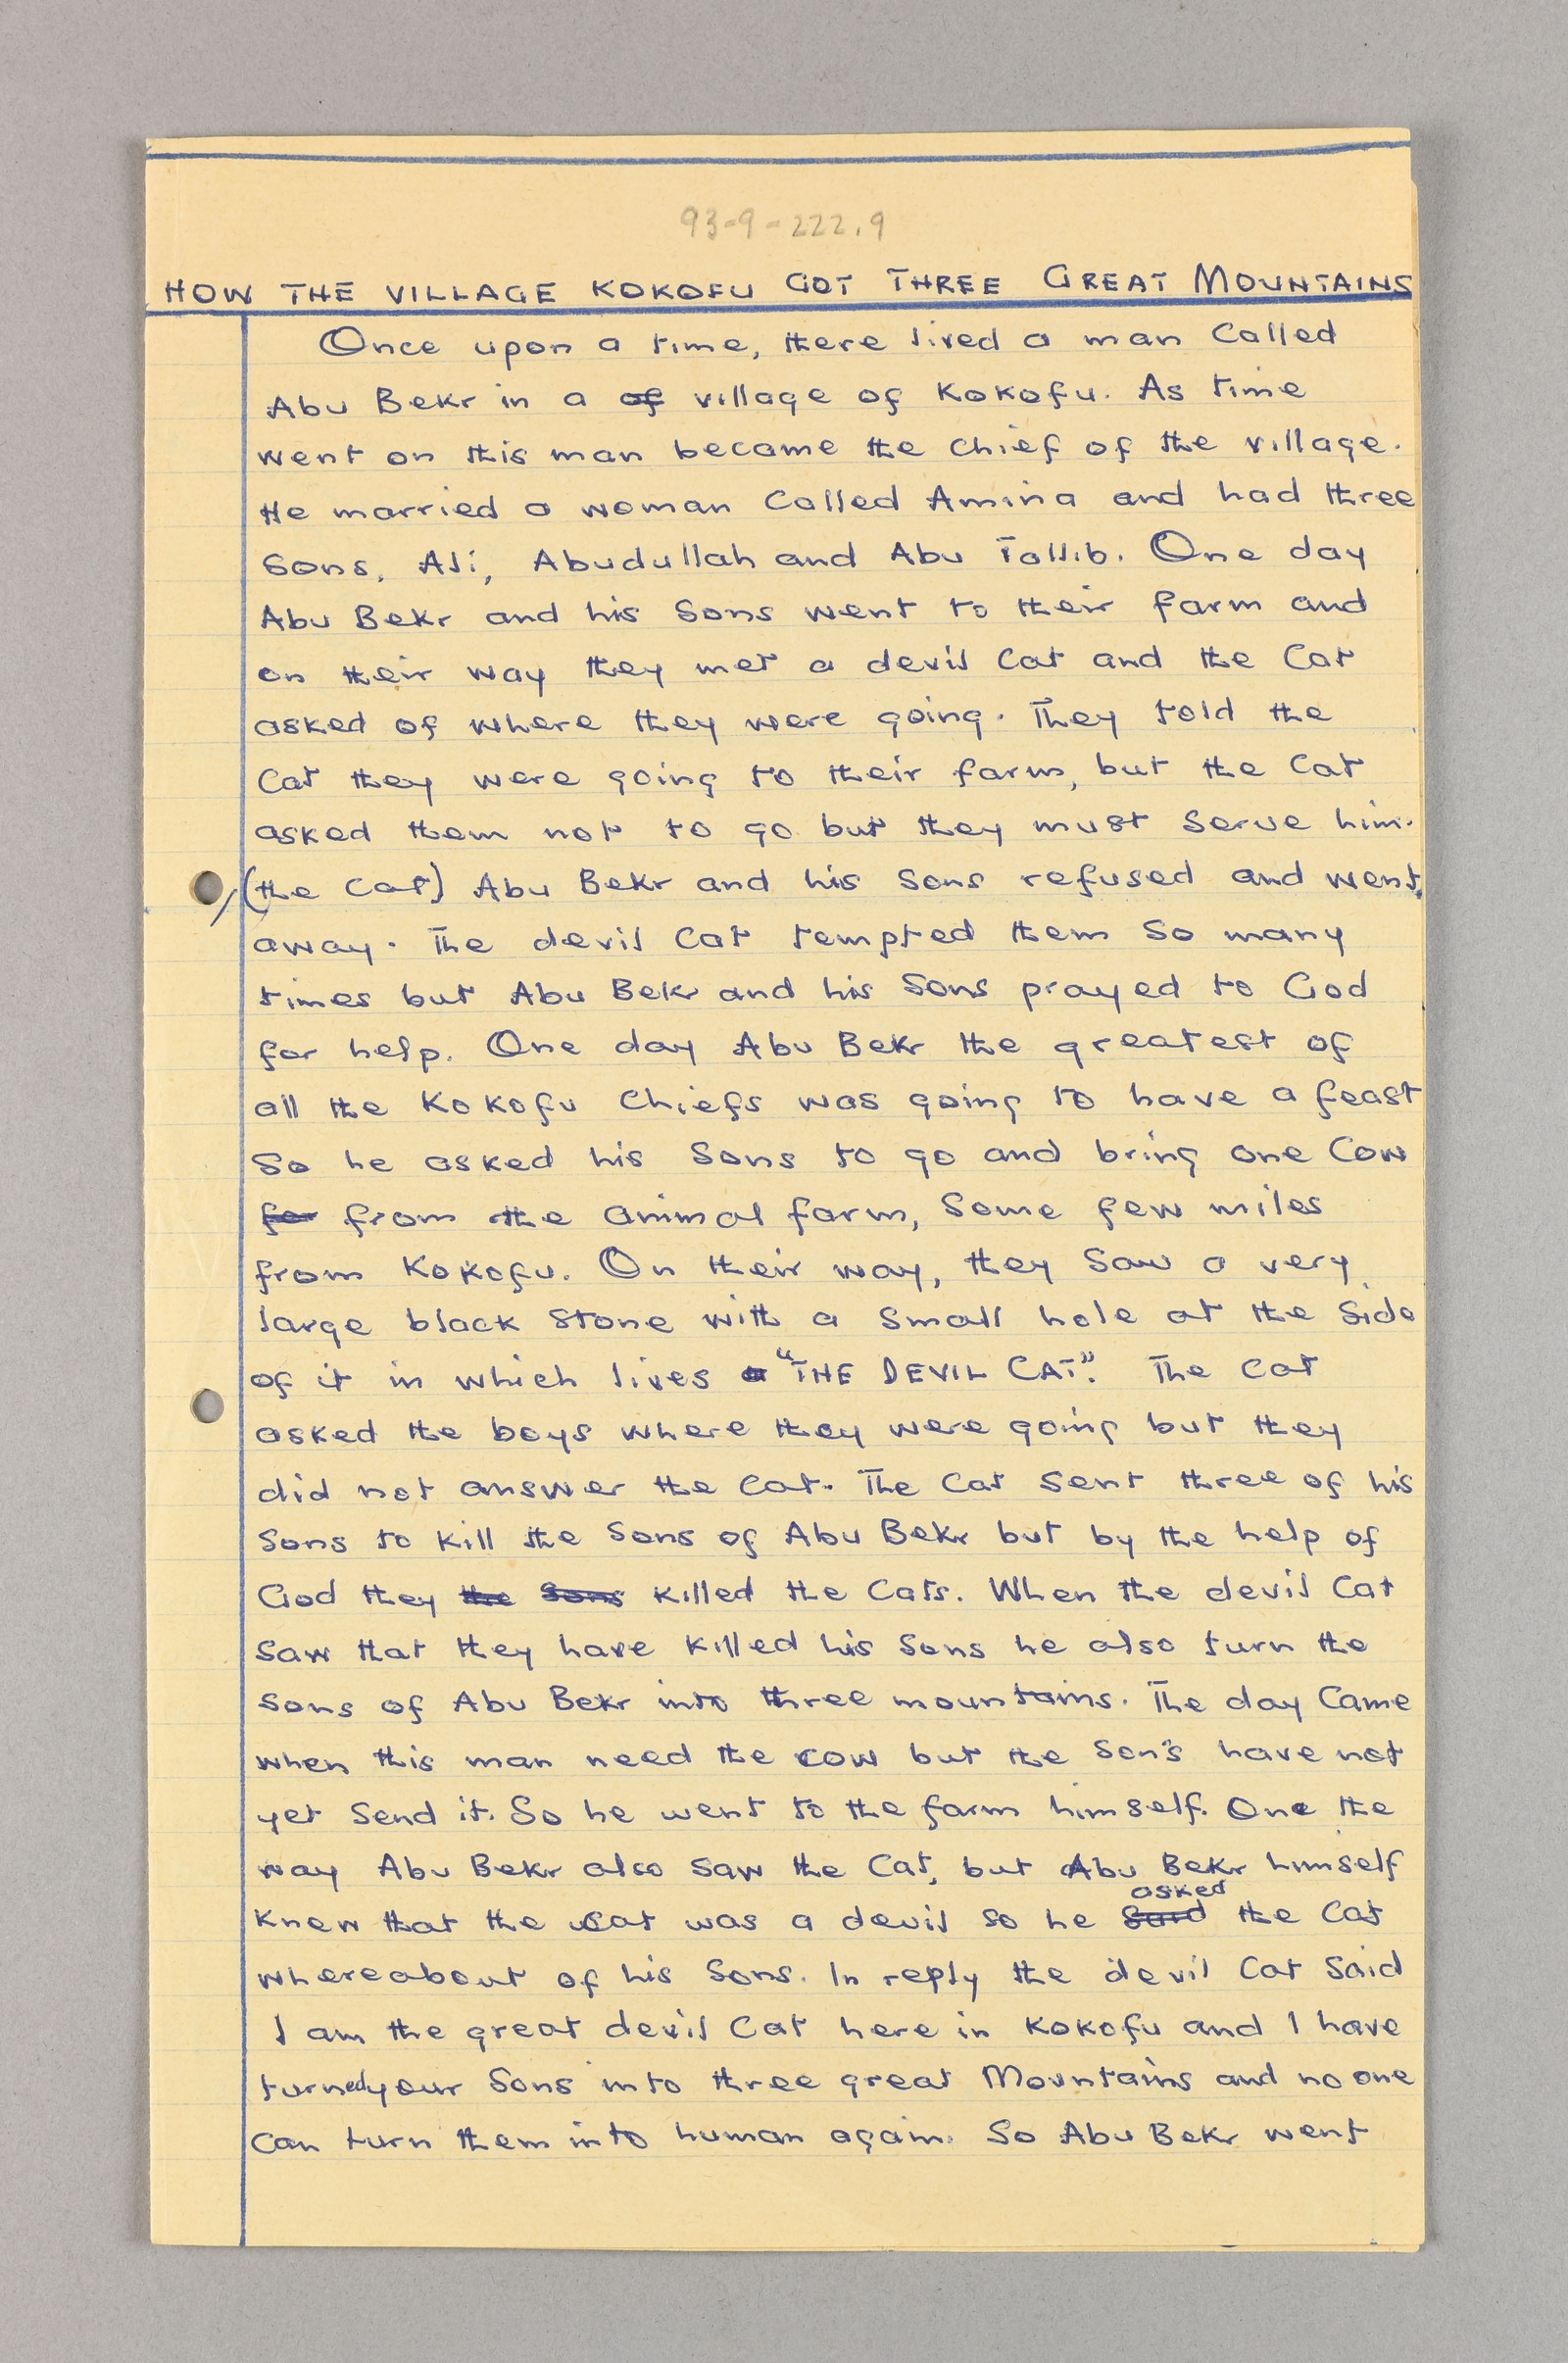 93-9-222.9
HOW THE VILLAGE KOKOFU GOT THREE GREAT MOUNTAINS
Once upon a time, there lived a man Called
Abu Bekr in a of village of Kokofu. As time
went on this man became the chief of the village.
He married a woman Called Amina and had three
Sons, Ali, Abudullah and Abu Tallib. One day
Abu Bekr and his Sons went to their farm and
on their way they met a devil Cat and the Cat
asked of where they were going. They told the
Cat they were going to their farm, but the Cat
asked them not to go but they must serve him.
(the Cat) Abu Bekr and his sons refused and went
away. The devil Cat tempted them So many
times but Abu Bekr and his Sons prayed to God
for help. One day Abu Bekr the greatest of
all the Kokofu Chiefs was going to have a feast
So he asked his Sons to go and bring one Cow
for from the animal farm, Some few miles
from Kokofu. On their way, they Saw a very
large black Stone with a Small hole at the Side
of it in which lives a "THE DEVIL CAT". The Cat
asked the boys where they were going but they
did not answer the Cat. The Cat Sent three of his
Sons to kill the Sons of Abu Bekr but by the help of
God they the Sons killed the Cats. When the devil Cat
Saw that they have killed his Sons he also turn the
Sons of Abu Bekr into three mountains. The day Came
when this man need the cow but the Son's have not
yet Send it. So he went to the farm himself. One the
way Abu Bekr also Saw the Cat, but Abu Bekr himself
Knew that the Cat was a devil So he Said asked the Cat
whereabout of his Sons. In reply the devil Cat Said
I am the great devil Cat here in Kokofu and I have
turned your Sons into three great Mountains and no one
Can turn them into human again. So Abu Bekr went